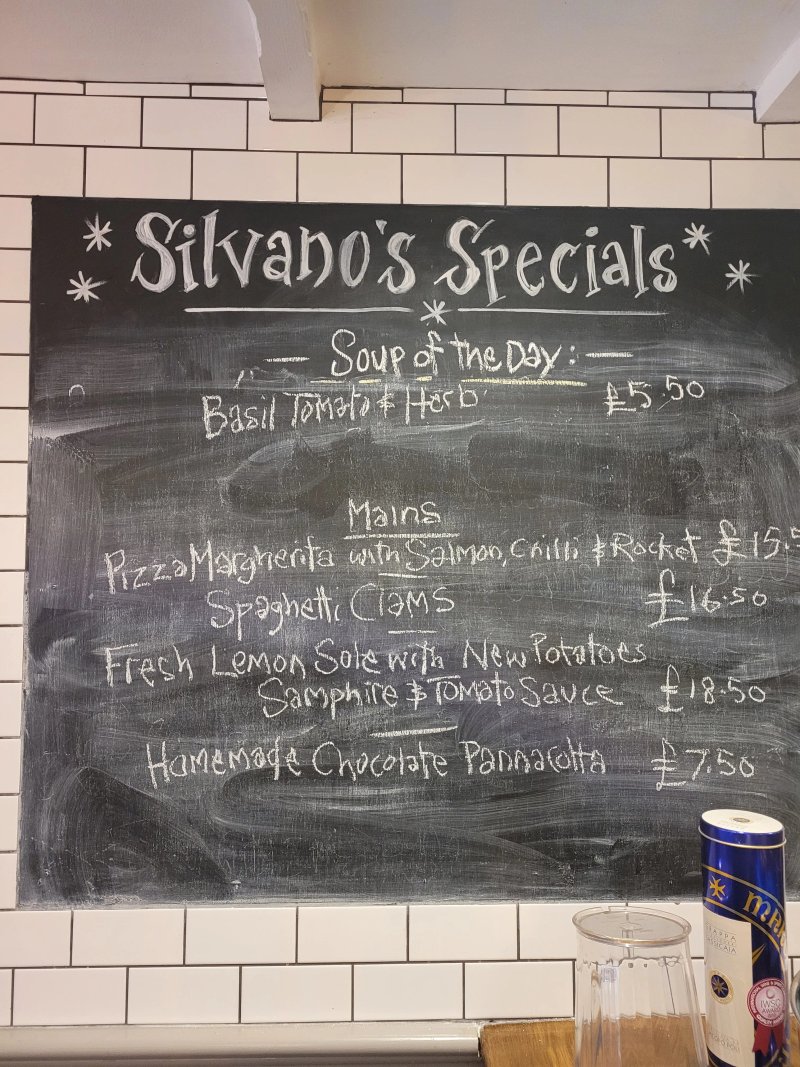 Silvano's Specials
Soup of the Day:
Basil Tomato & Herb £5.50
Mains
Pizza Margherita with Salmon, Chilli & Rocket £15.5
Spaghetti Clams £16.50
Fresh Lemon Sole with New Potatoes
Samphire & Tomato Sauce £18.50
Homemade Chocolate Pannacotta £7.50
GRAPPA
IWSC